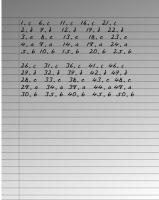 1. c 6. c 11. c 16. c 21. c
2. d 7. d 12. d 17. d 22. d
3. e 8. e 13. e 18. e 23. e
4. a 9. a 14. a 19. a 24. a
5. b 10. b 15. b 20. b 25. b
26. c 31. c 36. c 41. c 46. c
32. d 42. d
28. e 33. e 38. e 43. e 48. e
29. a 34. a 39. a 44. a 49. a
30. b 35. b 40. b 45. b 50. b